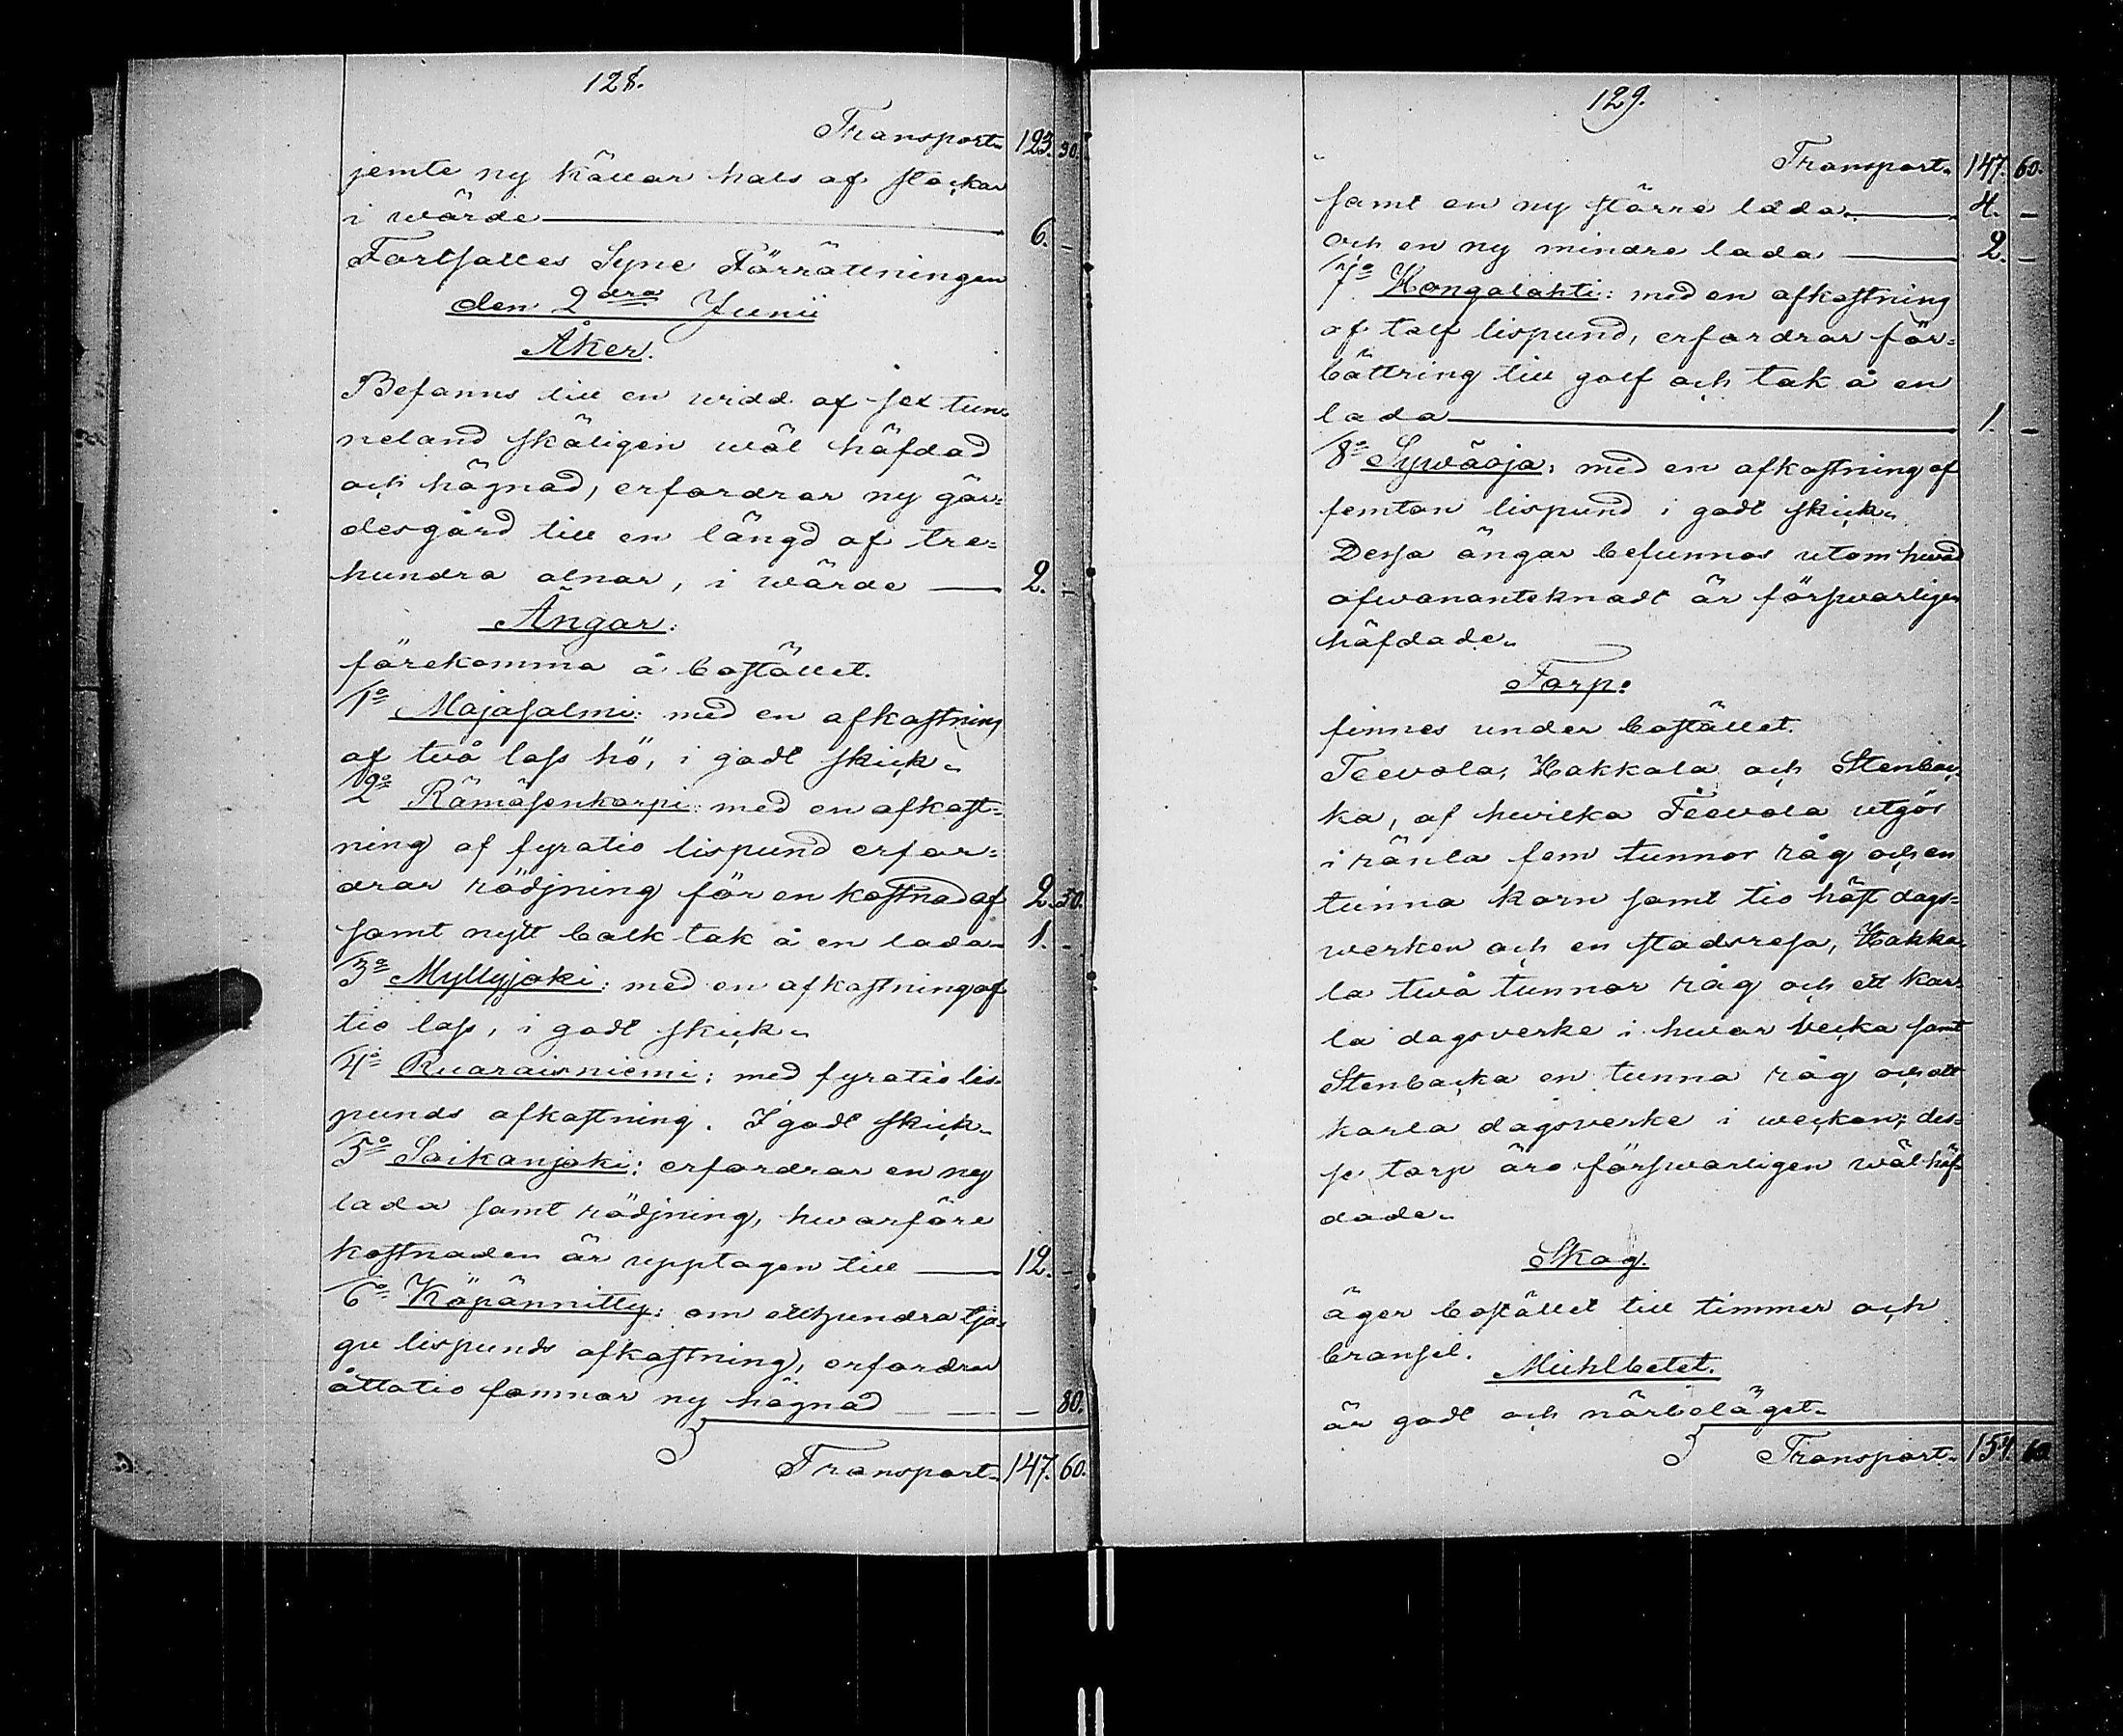 128.
Transport. 123. 30.
jemte ny källar hals af stockar
i wärde 6. -
Fortsattes Syne Förrättningen
den 2dra Junii
Åker.
Befanns till en vidd af sex tun-
neland skäligen wäl häfdad
och hägnad, erfordrar ny gär-
desgård till en längd af tre-
hundra alnar, i wärde 2. -
Ängar:
förekomma å bostället.
1o Majasalmi: med en afkastning
af två lass hö, i godt skick.
2o Rämäsenkorpi: med en afkast-
ning af fyratio lispund erfor-
drar rödjning för en kostnad af 2. 50.
samt nytt balk tak å en lada. 1. -
3o Myllyjoki: med en afkastning af
tio lass, i godt skick.
4o Ruaraisniemi: med fyratio lis-
punds afkastning. I godt skick.
5o Saikanjoki: erfordrar en ny
lada samt rödjning, hwarföre
kostnaden är upptagen till 12. -
6o Käpännitty: om etthundra tju-
gu lispunds afkastning, erfordrar
åttatio famnar ny hägnad - 80.
Transport. 147. 60.
129.
Transport. 147. 60.
samt en ny större lada. 4. -
och en ny mindre lada 2. -
7o Hongalahti: med en afkastning
af tolf lispund, erfordrar för-
bättring till golf och tak å en
lada 1. -
8o Sywäoja: med en afkastning af
femton lispund i godt skick.
Dessa ängar befunnos utom hwad
ofwanantecknadt är förswarligen
häfdade.
Torp:
finnes under bostället.
Teevola, Hakkala och Stenbac-
ka, af hwilka Teevola utgör
i ränta fem tunnor råg och en
tunna korn samt tio höst dags-
werken och en stadsresa, Hakka-
la två tunnor råg och ett kar-
la dagsverke i hwar vecka samt
Stenbacka en tunna råg och ett
karla dagsverke i weckan; des-
se torp äro förswarligen wäl häf-
dade.
Skog.
äger bostället till timmer och
bränsel.
Muhlbetet.
är godt och närbeläget.
Transport. 154. 60.